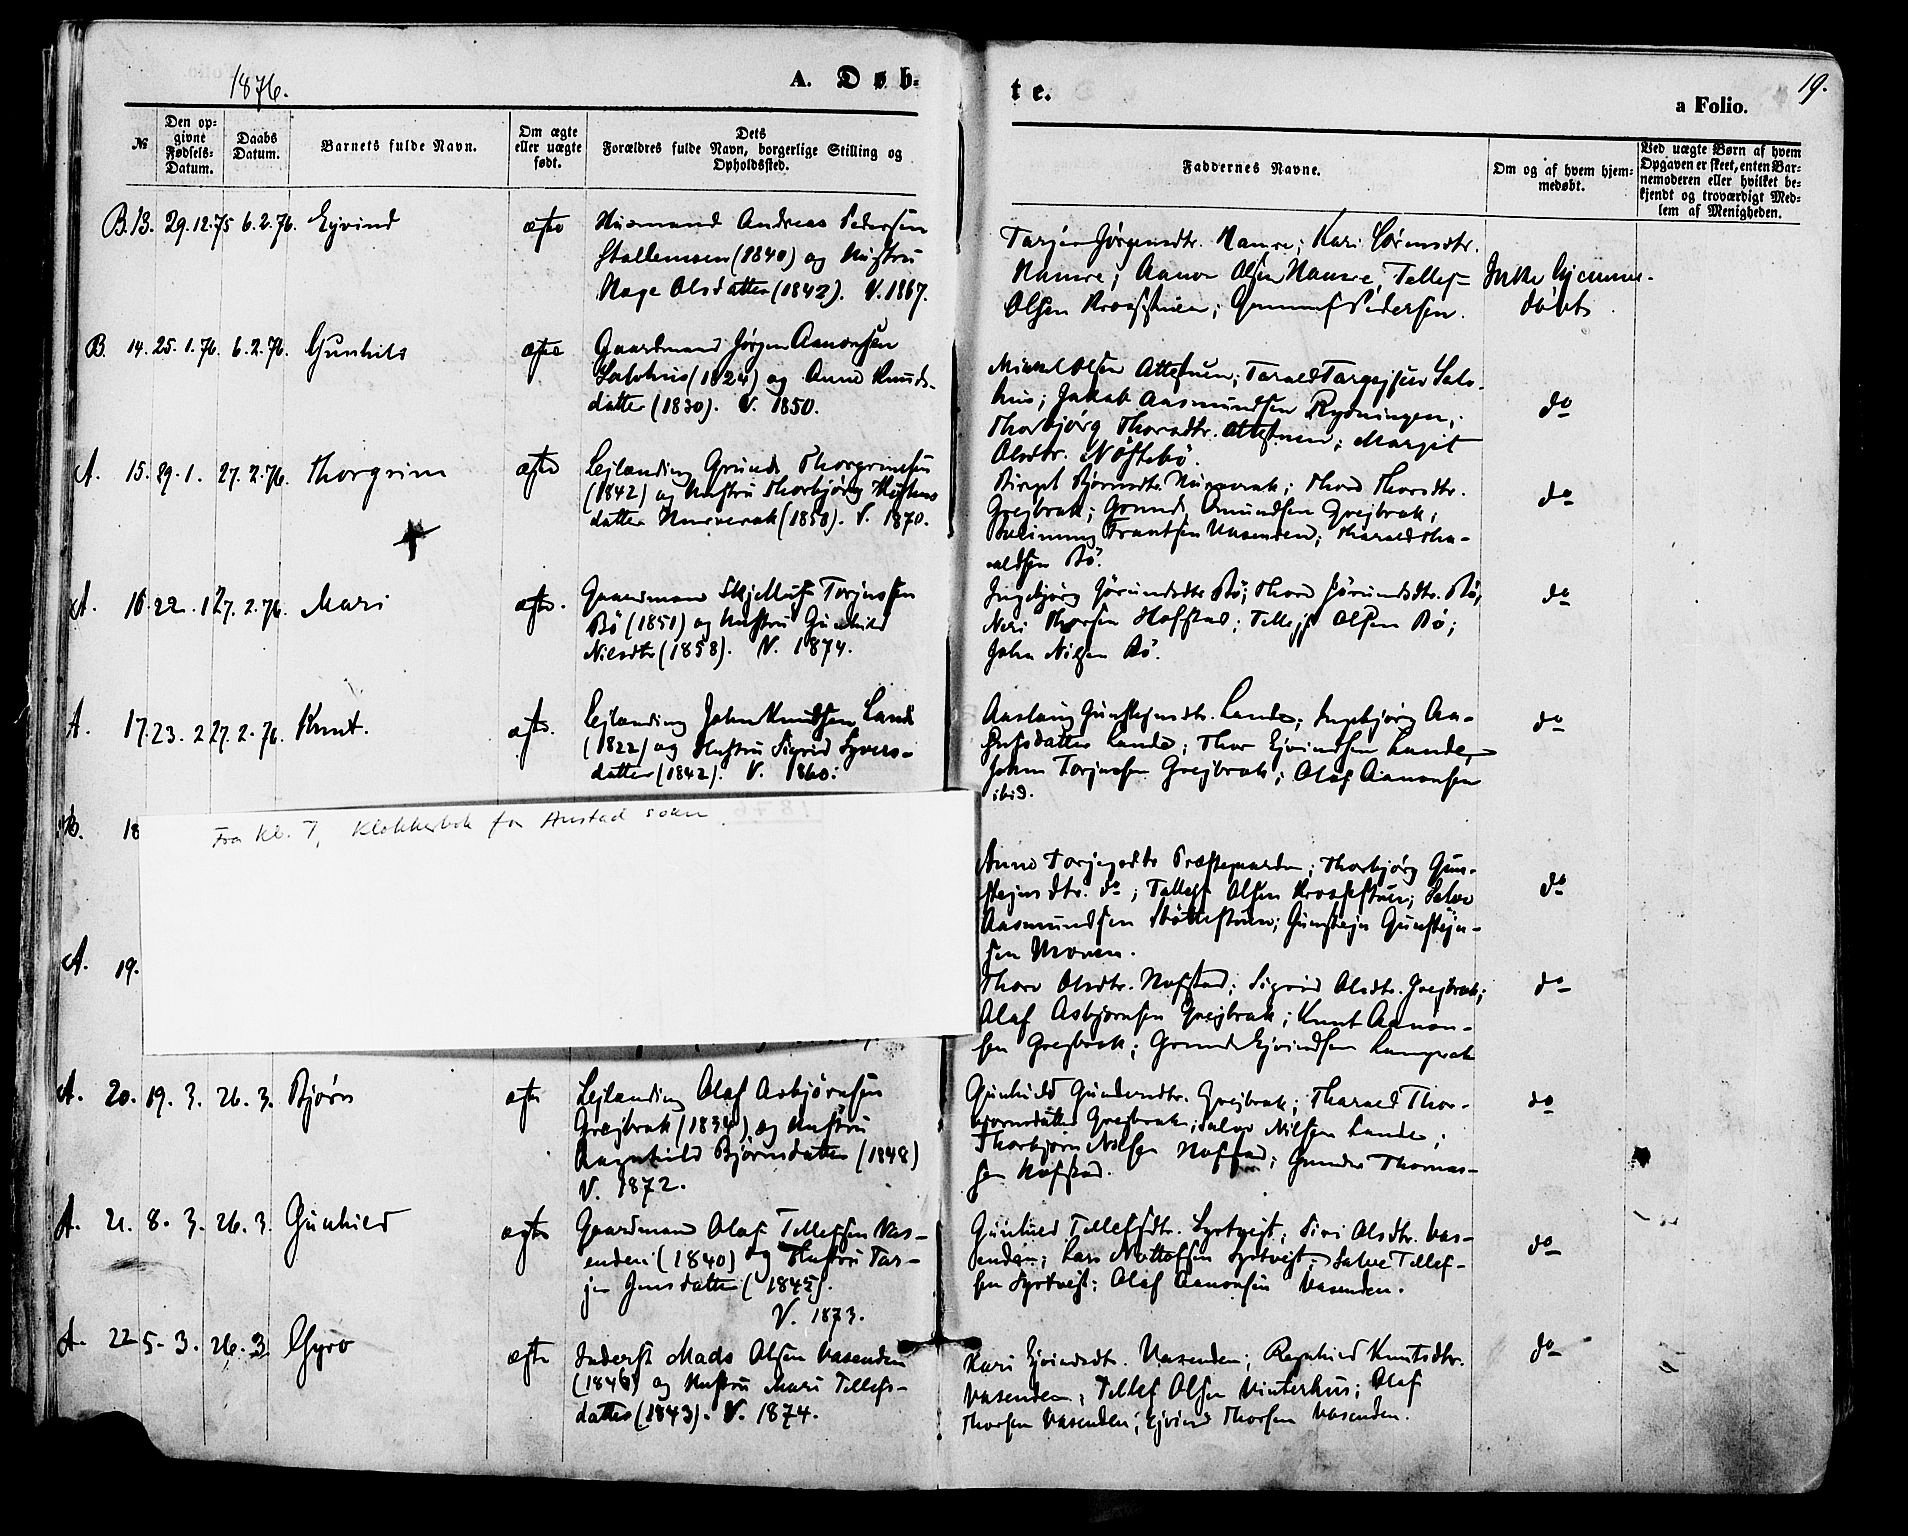 1876.
A. Døb-
te.
19.
a Folio.
№
Den op-
givne
Fødsels-
Datum.
Daabs
Datum.
Barnets fulde Navn.
Om ægte
eller uægte
født.
Dets
Forældres fulde Navn, borgerlige Stilling og
Opholdssted.
Faddernes Navne.
Om og af hvem hjem-
medøbt.
Ved uægte Børn af hvem
Opgaven er skeet, enten Bar-
nemoderen eller hvilket be-
kjendt og troværdigt Med-
lem af Menigheden.
B. 13. 29.12.75 6.2.76. Ejvind ægte Husmand Andreas Pedersen
(1840) og Hustru
Aage Olsdatter (1842). V. 1867.
Tarjer Jørgensdtr. Hamre; Kari
Hamre; Aanon Olsen Hamre; Tellef
Olsen; Gunnuf Pedersen.
Ikke hjemme-
døbt
B. 14. 25.1.76. 6.2.76. Gunhild ægte Gaardmand Jørgen Aanonsen
(1824) og Anne Knuds-
datter (1830). V. 1850.
Olsen; Tarald Targejsen
; Jakob Aasmundsen Rysningen;
Thorbjørg; Margit
Olsdtr.
do
A. 15. 29.1. 27.2.76. Thorgrim ægte Lejlænding Thorgrimsen
(1842) og Hustru Thorbjørg
datter (1850). V. 1870.
Birgit Bjørnsdtr.; Thore Thorsdtr.
Grejbrok; Amundsen Grejbrok;
Frantsen Vasenden; Tharald Tha-
raldsen Bö.
do
A. 16. 22.1 27.2.76. Mari ægte. Gaardmand Torjussen
Bö (1851) og Hustru Gunhild
Nilsdtr (1858). V. 1874.
Ingebjørg Jørundsdtr Bö; Thore Jørundsdtr. Bö;
Neri Thorsen Hofstad; Tellef Olsen Bö;
John Nilsen Bö.
do
A. 17. 23.2 27.2.76. Knut. ægte. Lejlænding John Knudsen Lande
(1822) og Hustru Sigrid Syvers-
datter (1842). V. 1860.
Aaslaug Gunstejnsdtr. Lande; Ingebjørg Aa-
datter Lande; Thor Ejvindsen Lande,
John Torjussen Grejbrok; Olaf Aanonsen
ibid.
do
B. 18
Fra kl. 7, Klokkerbok for Austad sokn.
Anne Præstegaarden; Thorbjørg Gun-
stejnsdtr. do; Tellef Olsen; Salve
Aasmundsen; Gunstejn Gunstejn-
sen Moren.
do
A. 19.
Thore Olsdtr. Hofstad; Sigrid Olsdtr. Grejbrok;
Olaf Asbjørnsen Grejbrok; Knut Aanon-
sen Grejbrok; Ejvindsen
do
A. 20. 19.3. 26.3. Bjørn ægte Lejlænding Olaf Asbjørnsen
Grejbrok (1834) og Hustru
Ragnhild Bjørnsdatter (1848)
V. 1872.
Gunhild Gundersdtr. Grejbrok; Tharald Thor-
Grejbrok; Salve Nilsen Lande;
Thorbjørn Nilsen Hofstad; Gunder Thomas-
sen Hofstad.
do
A. 21. 8.3. 26.3. Gunhild ægte Gaardmand Olaf Tellefsen Vas-
enden (1840) og Hustru Tar-
jer Jensdatter (1845).
V. 1873.
Gunhild Tellefsdtr. Syrtvejt; Siri Olsdtr. Vas-
enden; Lars Syrtvejt; Salve Tellef-
sen Syrtvejt; Olaf Aanonsen Vasenden.
do
A. 22 5.3. 26.3 Gyro ægte Inderst Mads Olsen Vasenden
(1846) og Hustru Mari Tellefs-
datter (1843). V. 1874.
Kari Ejvindsdtr. Vasenden; Ragnhild Knutsdtr.
Vasenden; Tellef Olsen Vinterhus; Olaf
Thorsen Vasenden; Ejvind Thorsen Vasenden.
do